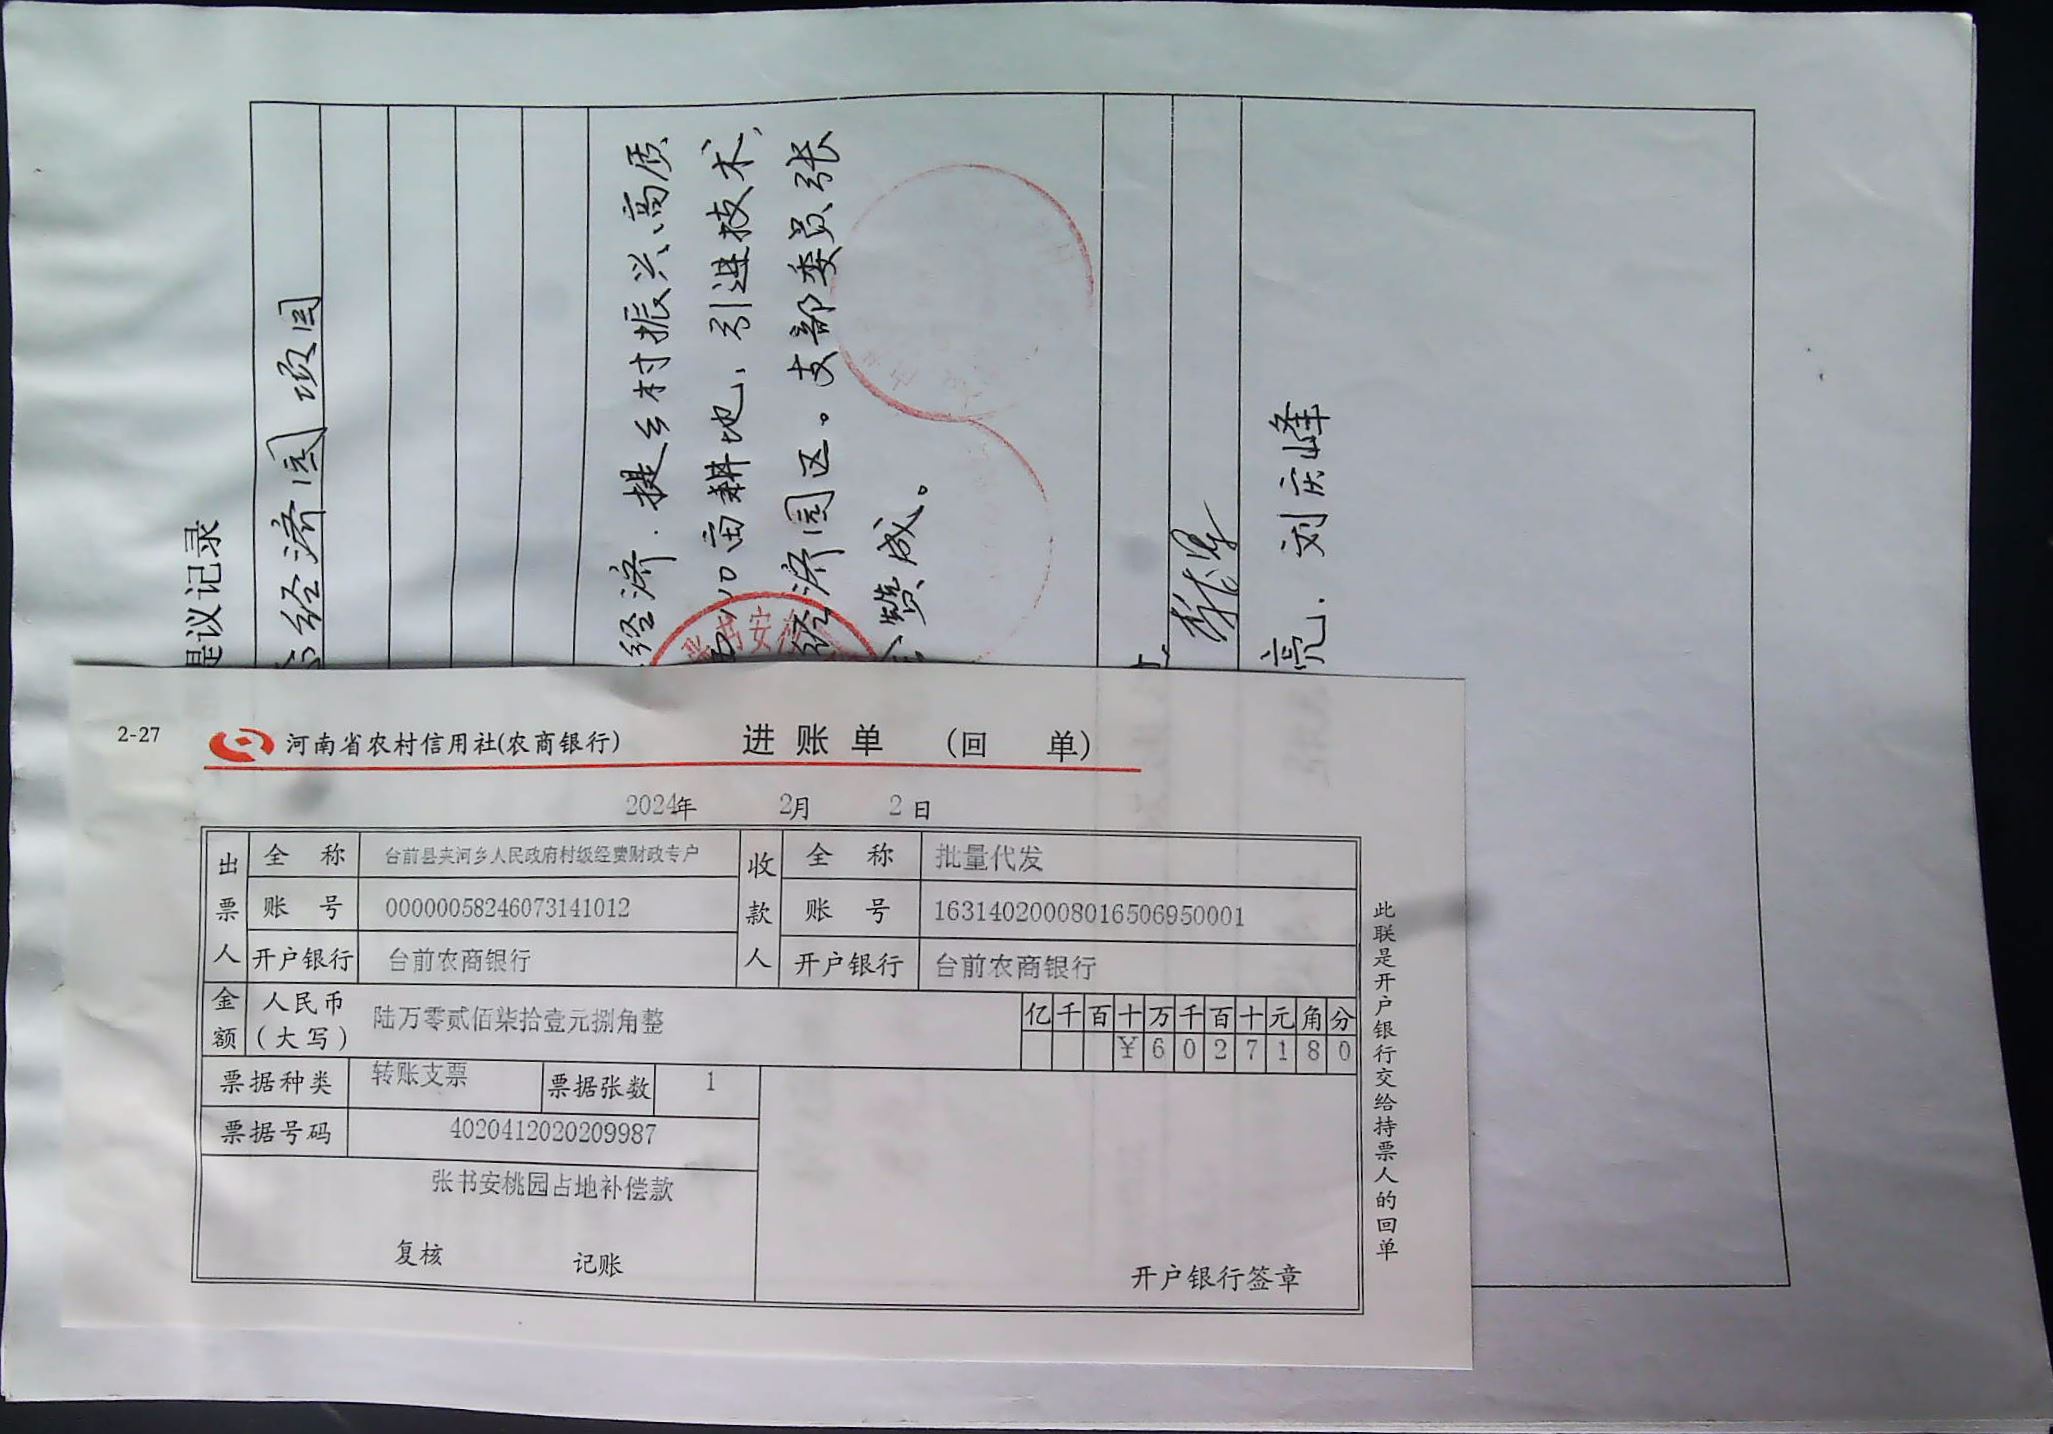 是议记录
经济园项目
经济.提乡村振兴、高质
10亩耕地、引进技术,
经济园区。支部委员张
赞成。
亮、刘庆峰
张书安
2-27
河南省农村信用社(农商银行)
进 账 单 (回 单)
2024年 2月 2日
出票人 全称 台前县夹河乡人民政府村级经费财政专户 收款人 全称 批量代发
账号 00000058246073141012 账号 16314020008016506950001
开户银行 台前农商银行 开户银行 台前农商银行
金额 人民币(大写) 陆万零贰佰柒拾壹元捌角整 亿千百十万千百十元角分
¥6027180
票据种类 转账支票 票据张数 1
票据号码 4020412020209987
张书安桃园占地补偿款
复核 记账
开户银行签章
此联是开户银行交给持票人的回单